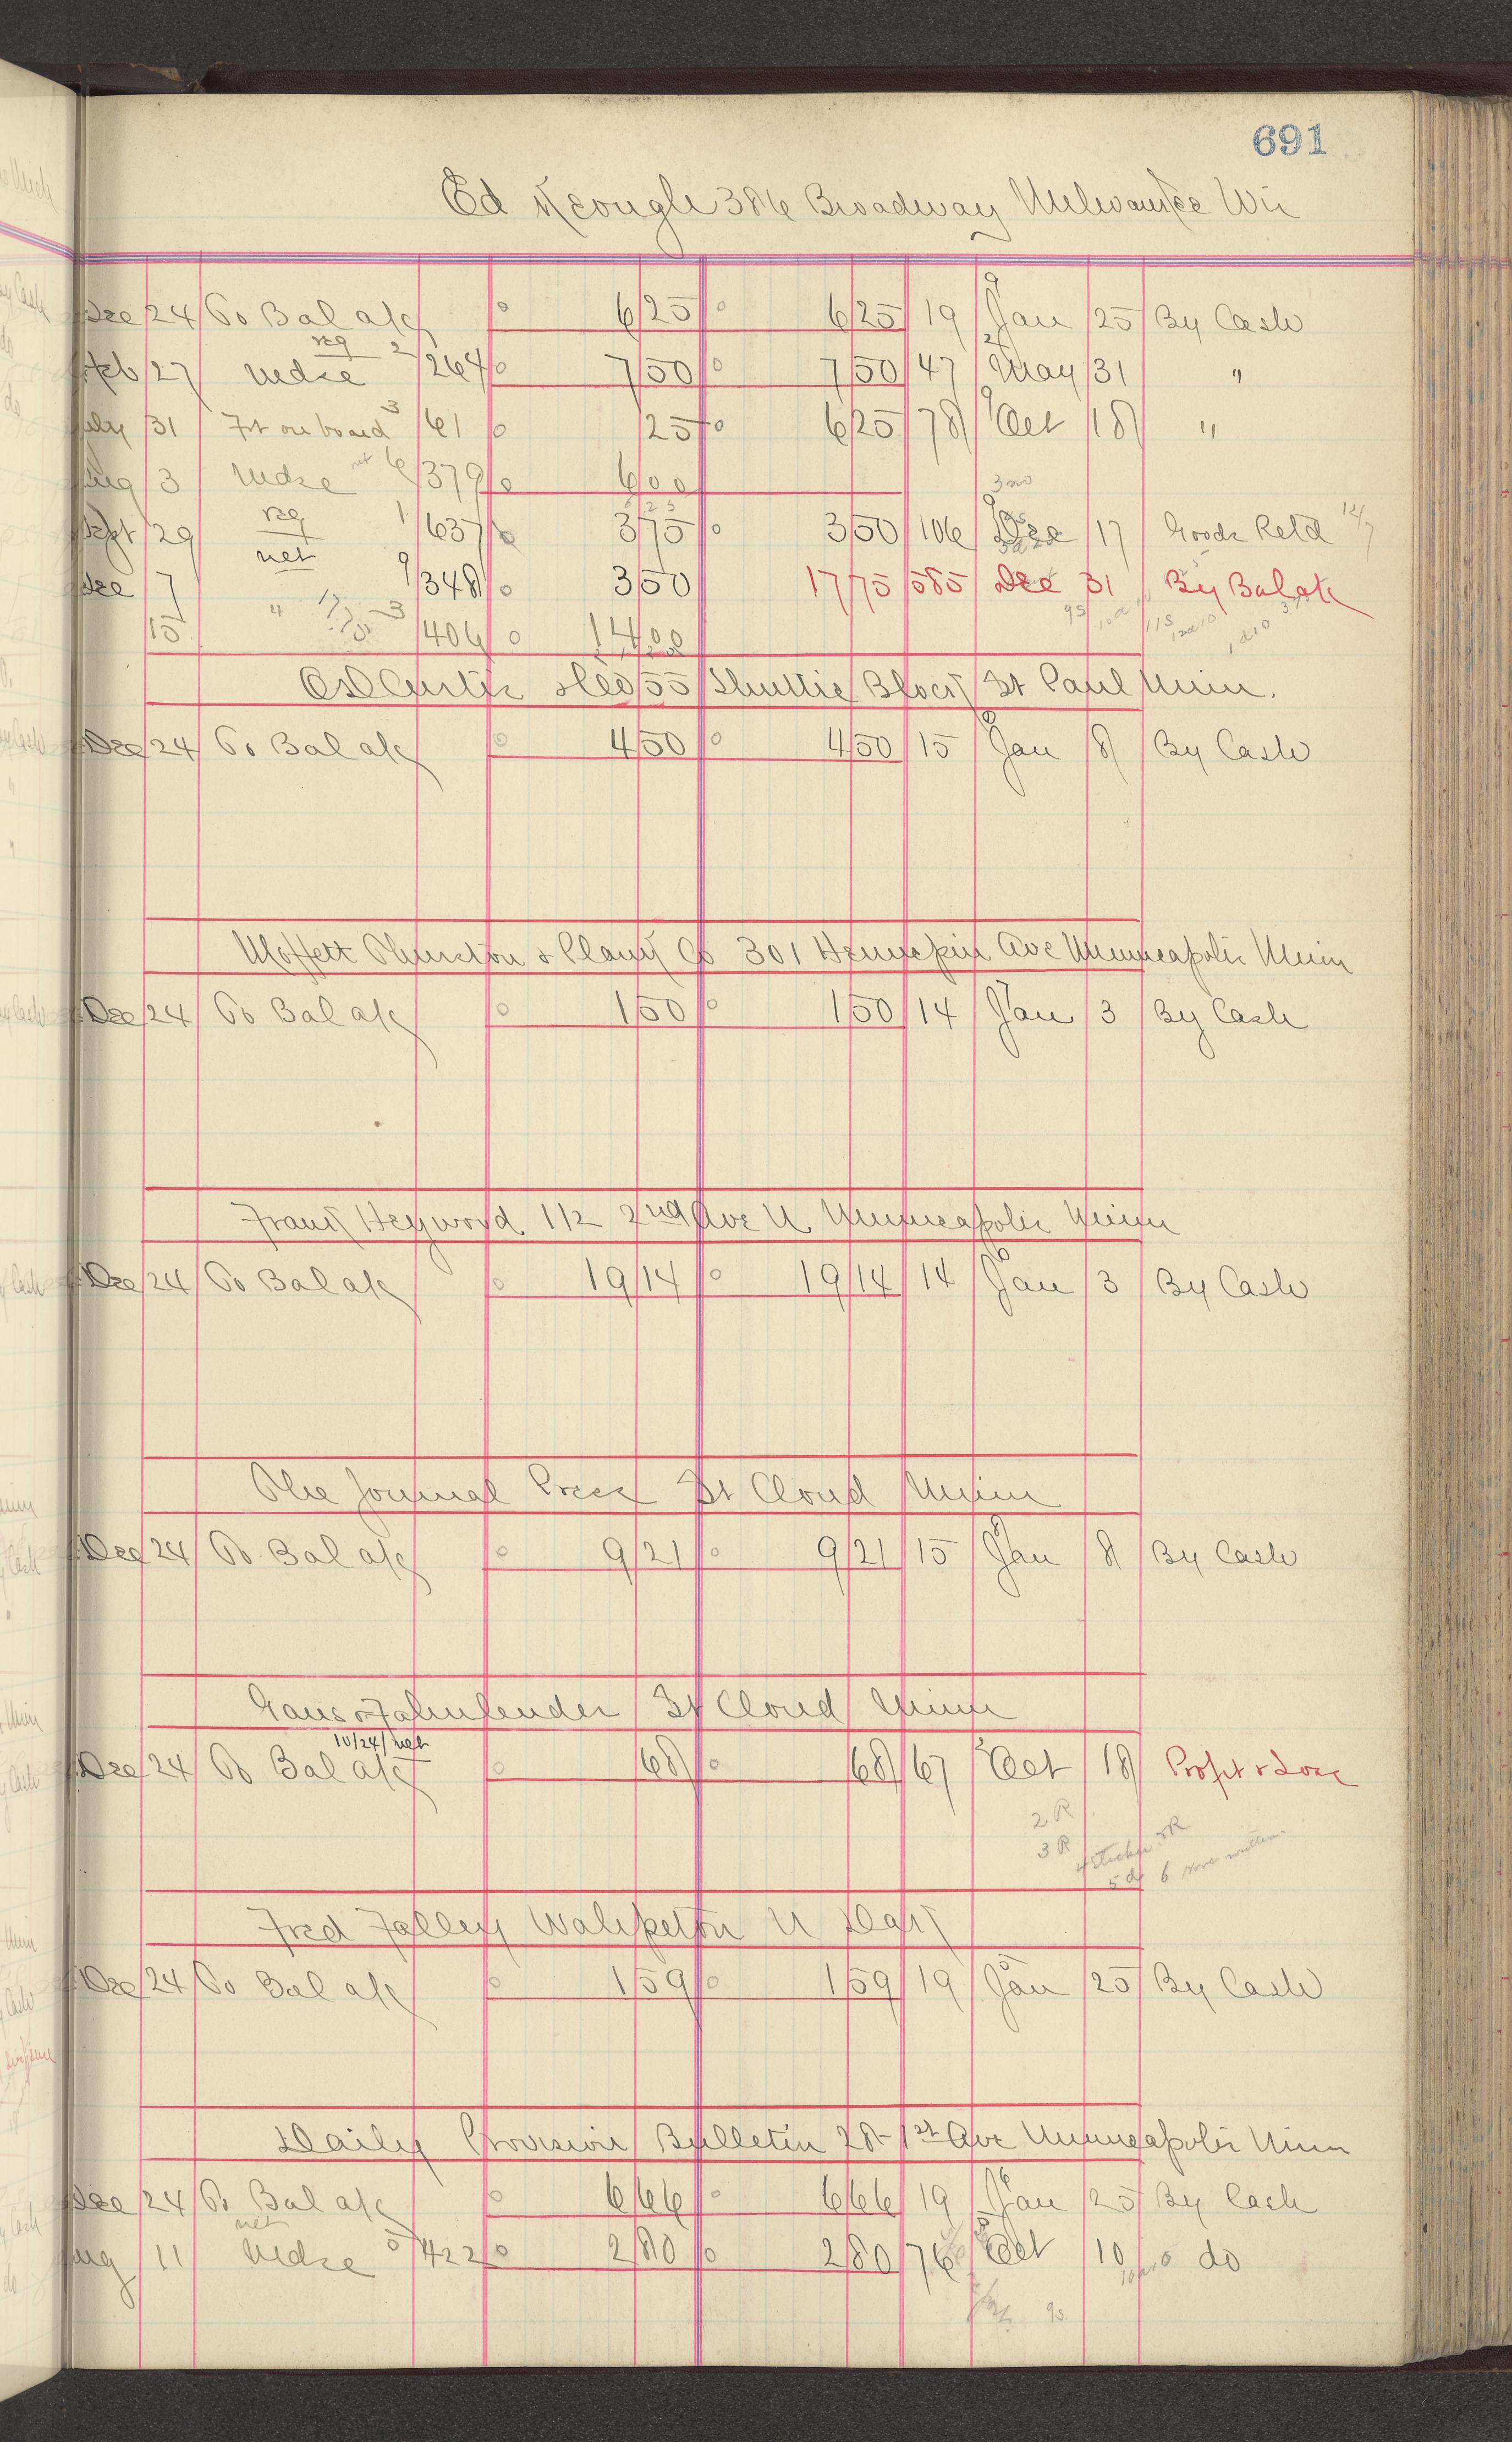 691
Ed Keough 386 Broadway Milwaukee Wis
Dec 24 To Bal a/c 6 25 6 25 19 Jan 25 By Cash
reg
Feb 27 Mdse 2/264 7 50 7 50 47 May 31 "
July 31 Frt on board 3/61 25 6 25 78 Oct 18 "
Aug 3 Mdse net 6/379 6 00
3
Sept 29 reg 1/637 3 75 3 50 106 Dec 17 Goods Retd 12/7
net
Dec 7 9/348 3 50 17 75 585 Dec 31 By Bal a/c
15 " 3/406 14 00
& Co 55 Block St Paul Minn.
Dec 24 To Bal a/c 4 50 4 50 15 Jan 8 By Cash
Moffett Thurston & Plank Co 301 Hennepin Ave Minneapolis Minn
Dec 24 To Bal a/c 1 50 1 50 14 Jan 3 By Cash
Frank Heywood 112 2nd Ave N Minneapolis Minn
Dec 24 To Bal a/c 19 14 19 14 14 Jan 3 By Cash
The Journal Press St Cloud Minn
Dec 24 To Bal a/c 9 21 9 21 15 Jan 8 By Cash
St Cloud Minn
10/24/ net
Dec 24 To Bal a/c 68 68 67 Oct 18 Profit & Loss
2 R
3 R
Fred Falley Wahpeton N Dak
Dec 24 To Bal a/c 1 59 1 59 19 Jan 25 By Cash
Daily Provision Bulletin 28-1st Ave Minneapolis Minn
Dec 24 To Bal a/c 6 66 6 66 19 Jan 25 By Cash
net
Aug 11 Mdse 5/422 2 80 2 80 76 Oct 10 do
95